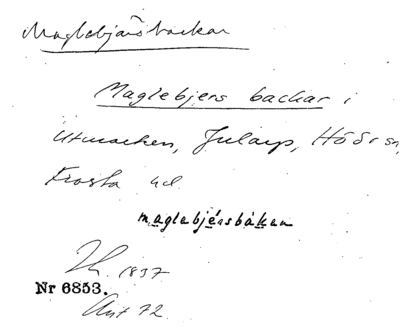 Maglebjärsbackar
Maglebjers backar i
Utmarken, Jularp, Höör sn,
Frosta hd.
maglabjérsbákan
1837
Nr 6853.
Ant 72